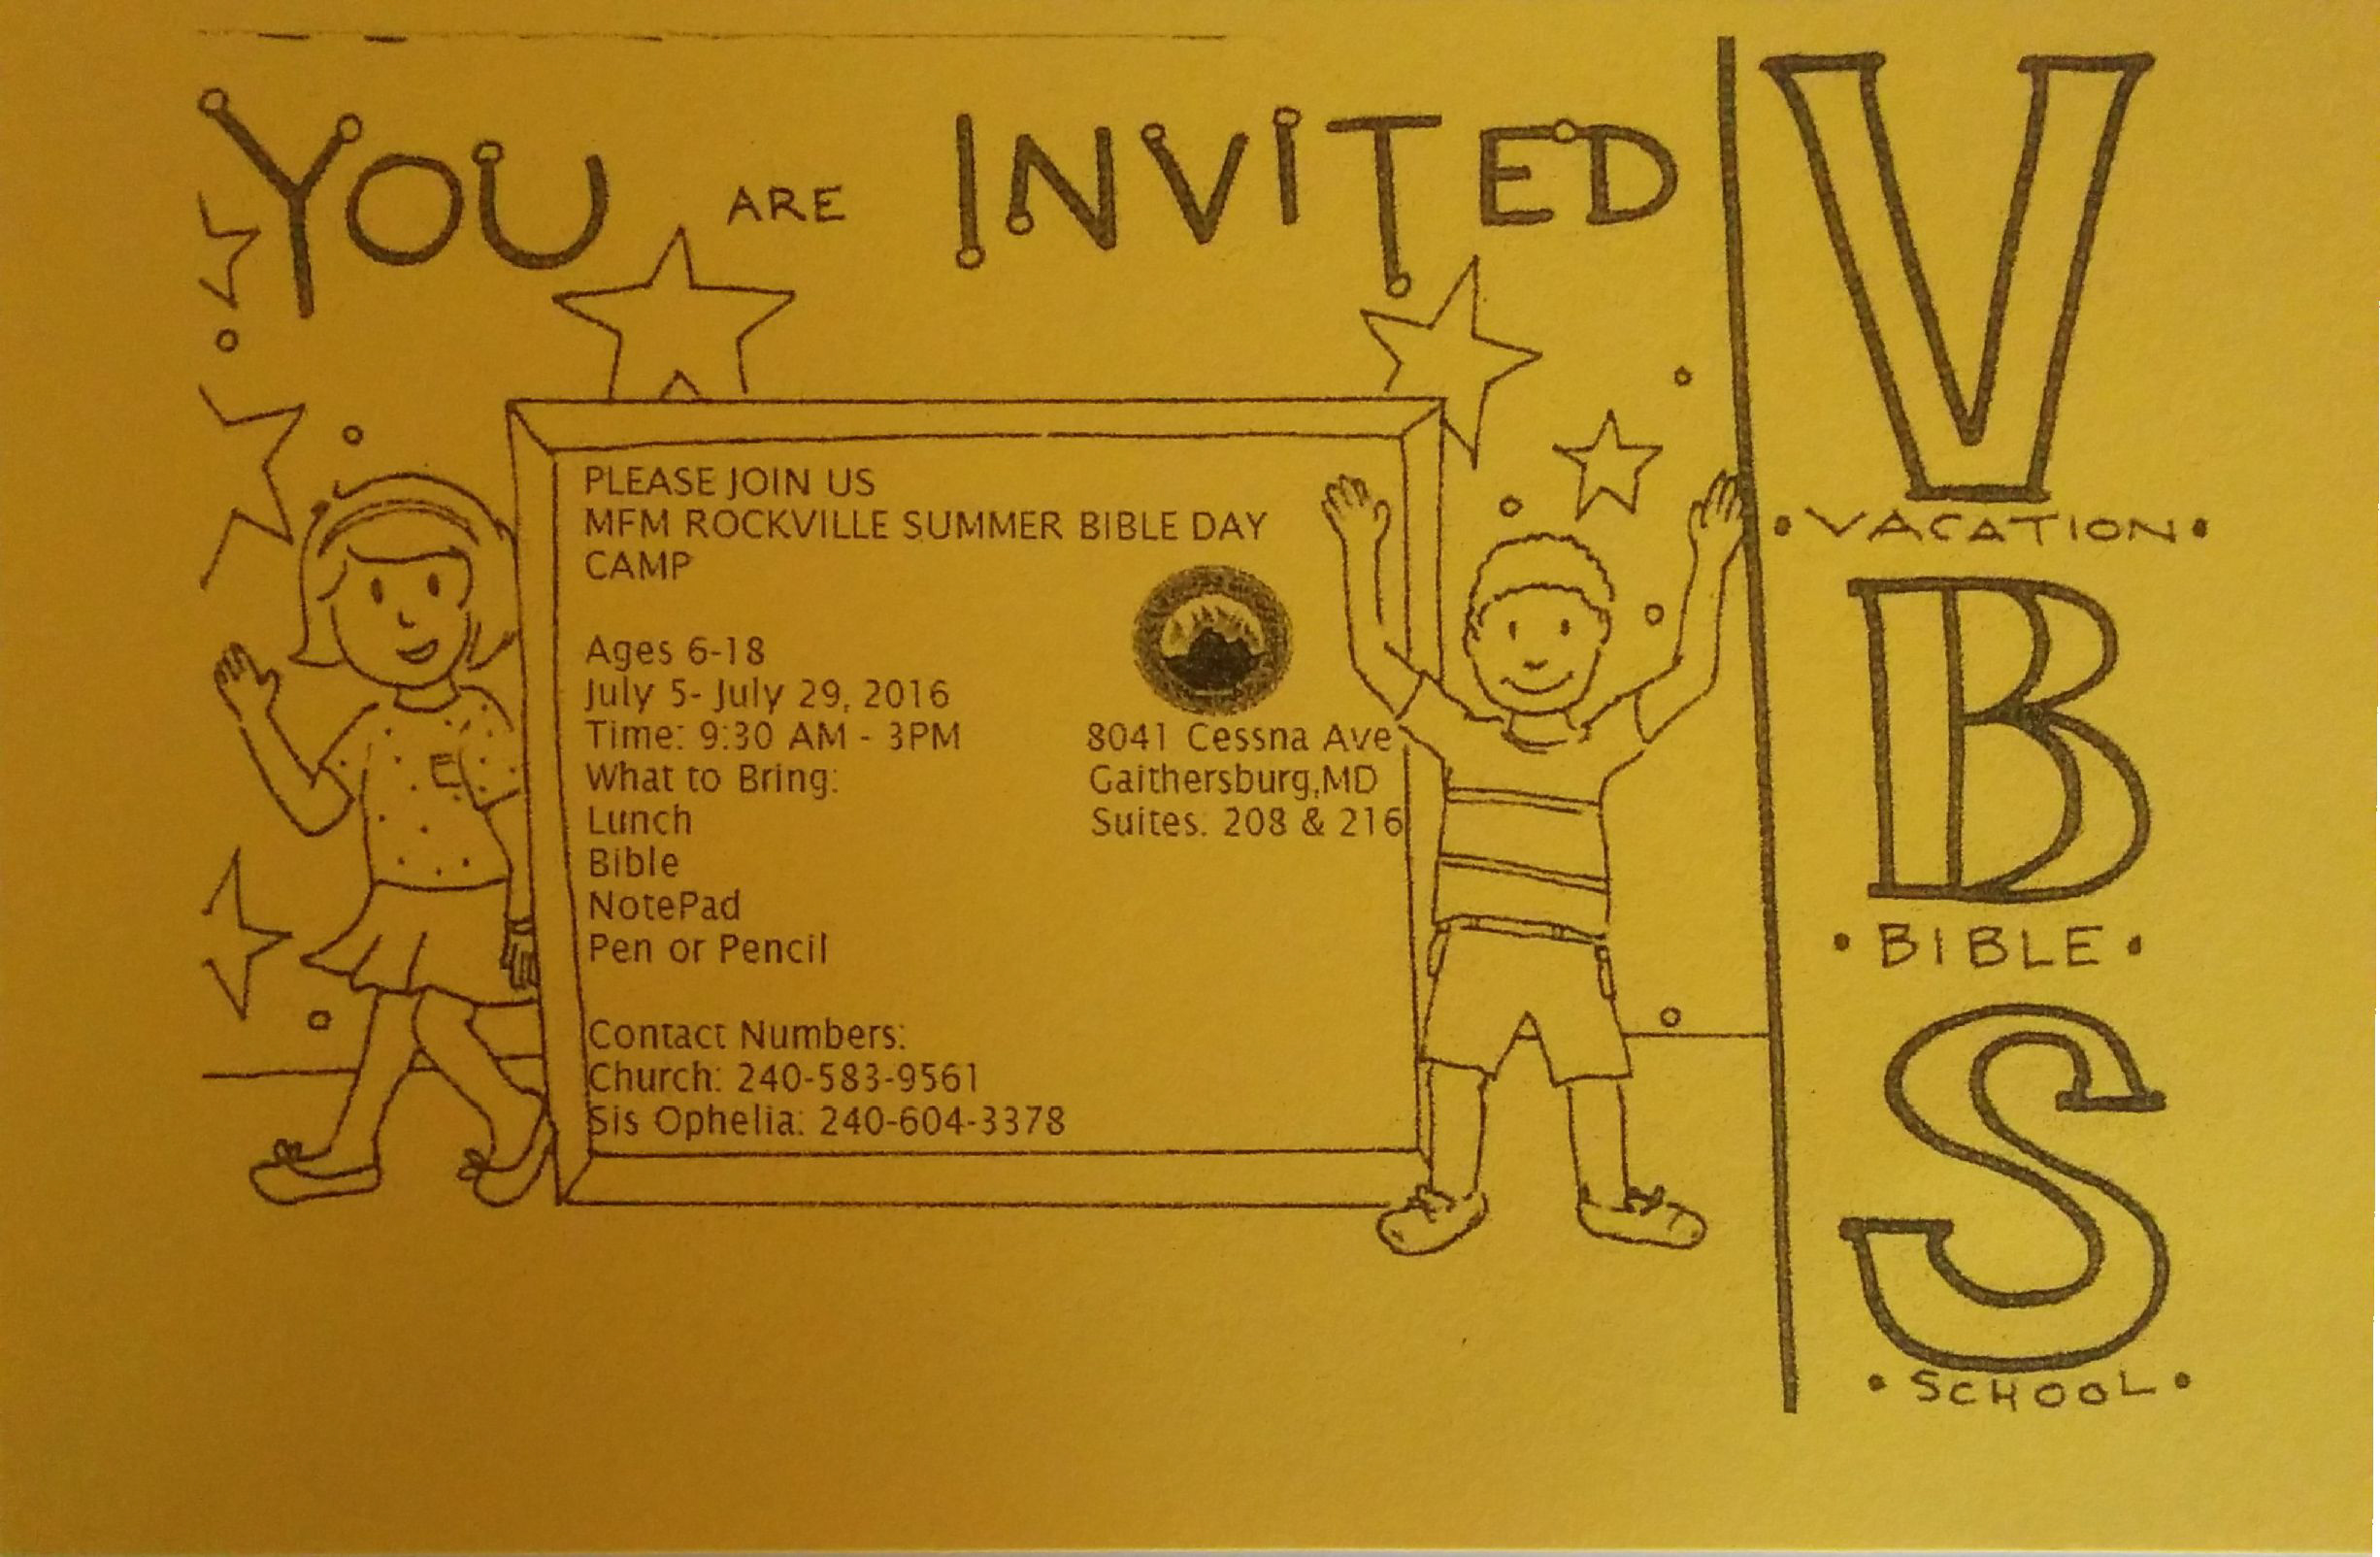 YOU ARE INVITED
PLEASE JOIN US
MFM ROCKVILLE SUMMER BIBLE DAY
CAMP
Ages 6-18
July 5- July 29, 2016
Time: 9:30 AM - 3PM
What to Bring:
Lunch
Bible
NotePad
Pen or Pencil
8041 Cessna Ave
Gaithersburg,MD
Suites: 208 & 216
Contact Numbers:
Church: 240-583-9561
Sis Ophelia: 240-604-3378
V
•VACATION•
B
•BIBLE•
S
•SCHOOL•